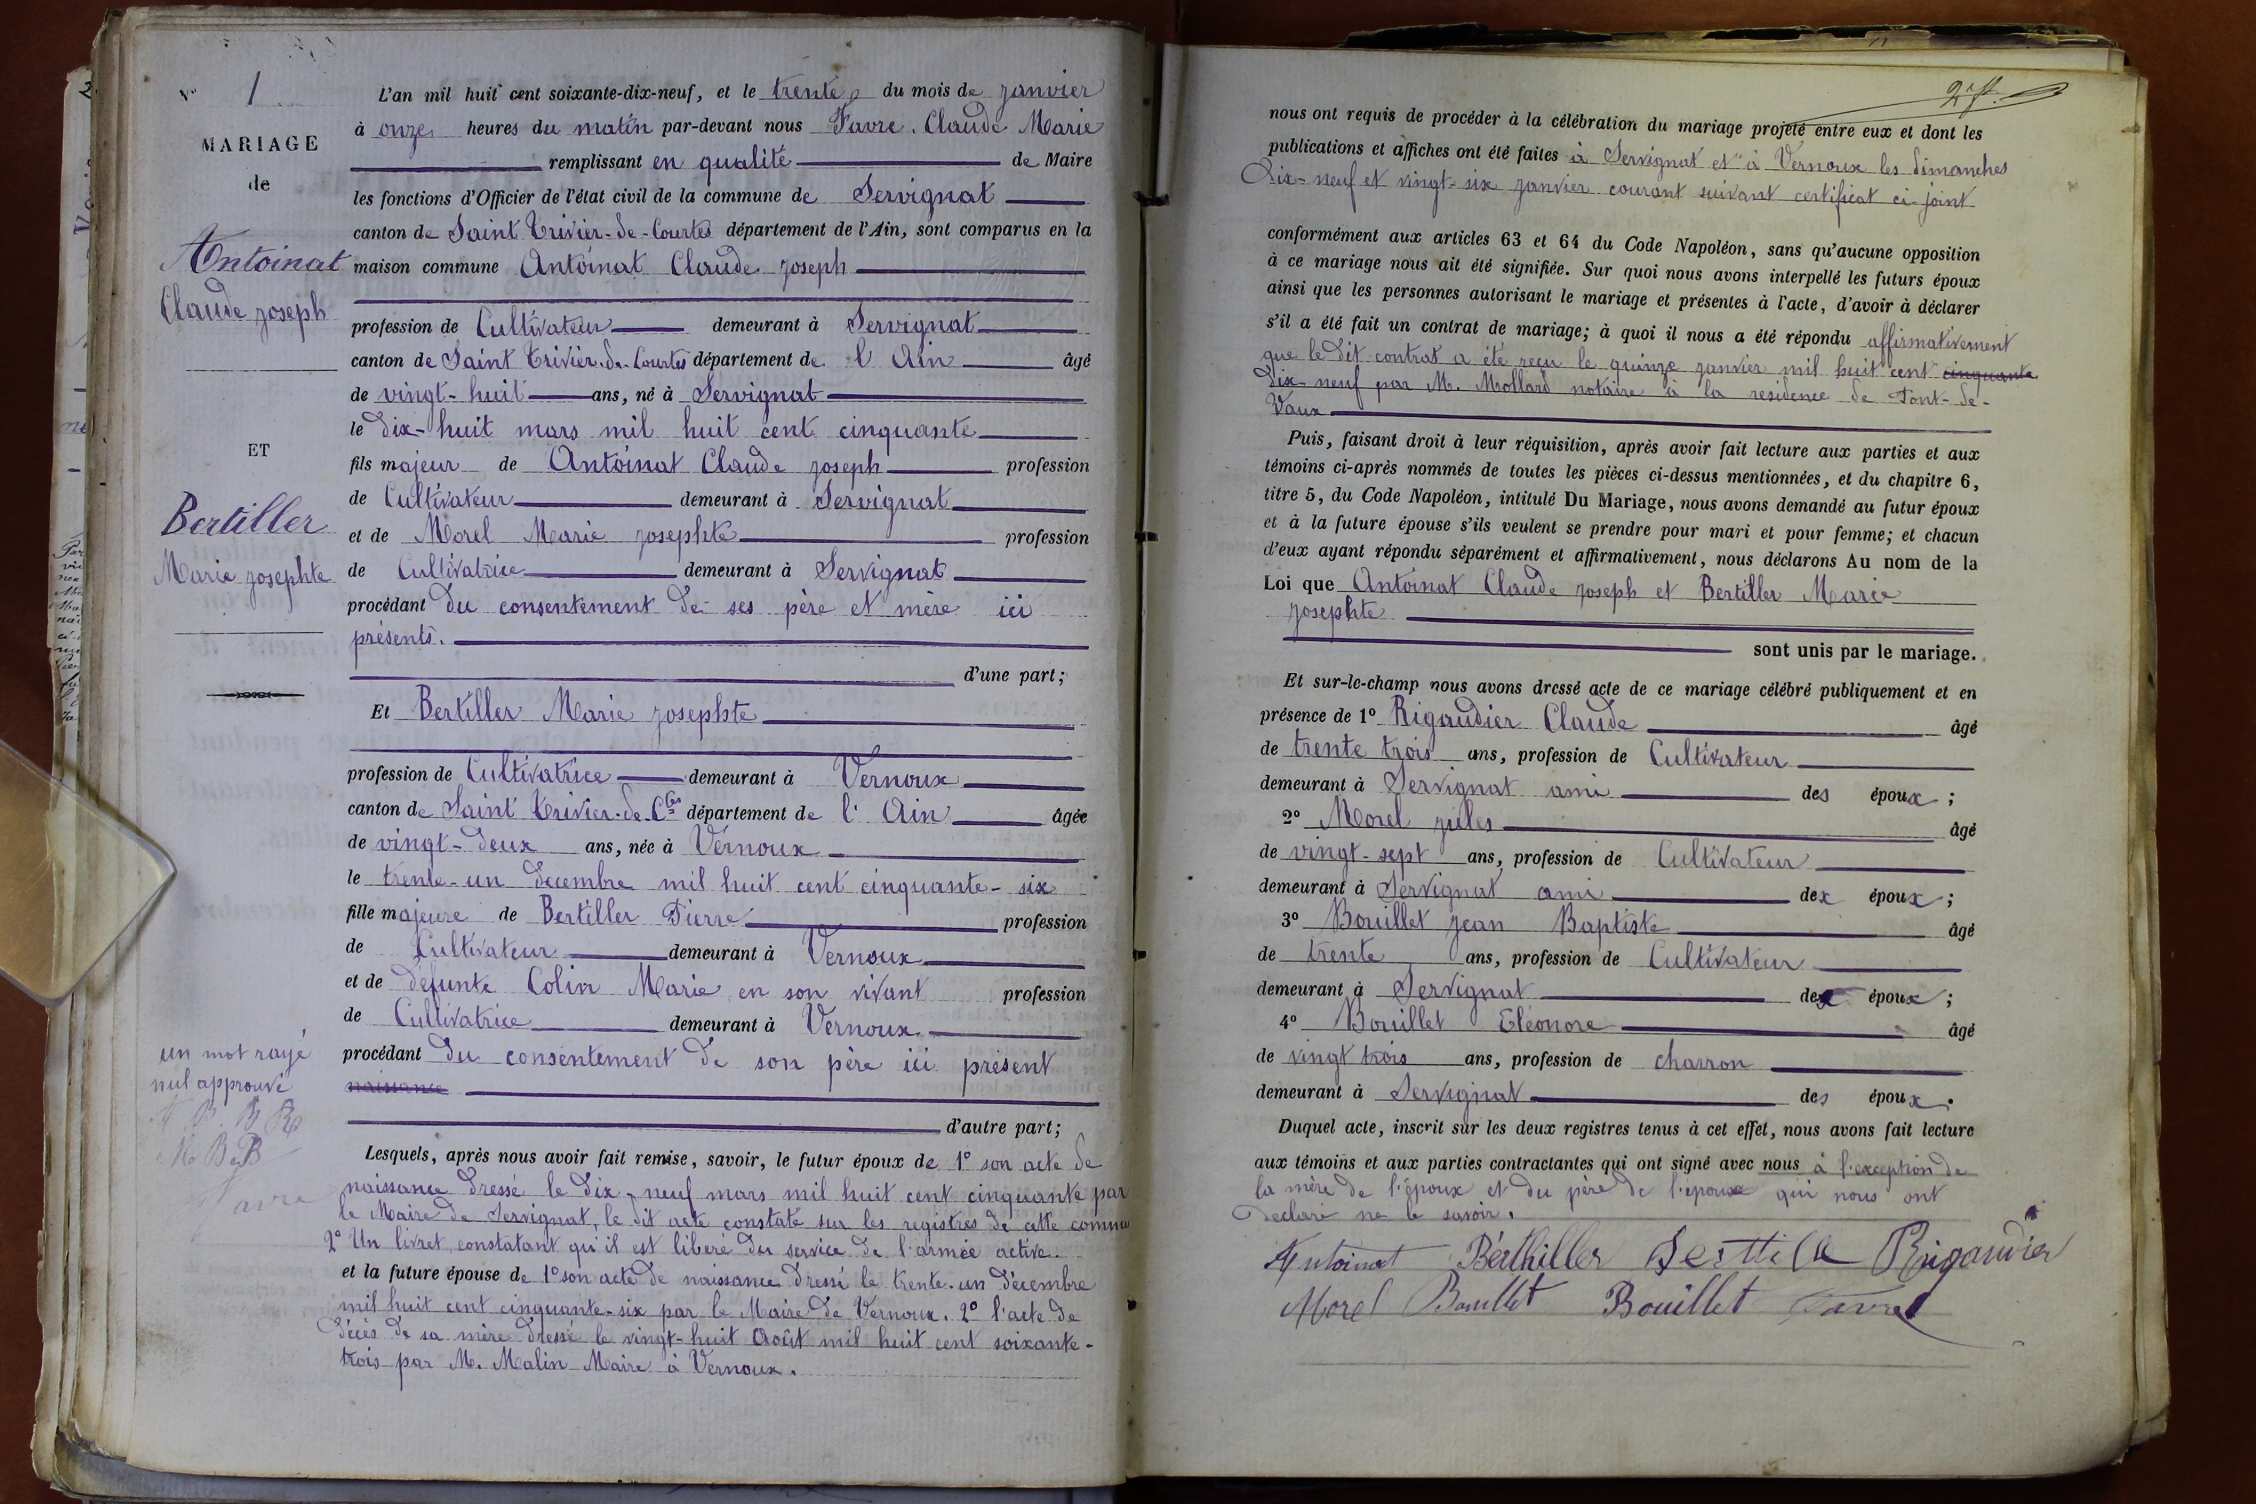 N° 1
MARIAGE
de
Antoinat
Claude Joseph
ET
Bertiller
Marie Josephte
un mot rayé
nul approuvé
L'an mil huit cent soixante-dix-neuf, et le trente du mois de Janvier
à onze heures du matin par-devant nous Favre Claude Marie
remplissant en qualité de Maire
les fonctions d'Officier de l'état civil de la commune de Servignat
canton de Saint Trivier-de-Courtes département de l'Ain, sont comparus en la
maison commune Antoinat Claude Joseph
profession de Cultivateur demeurant à Servignat
canton de Saint Trivier-de-Courtes département de l'Ain âgé
de vingt-huit ans, né à Servignat
le dix-huit mars mil huit cent cinquante
fils majeur de Antoinat Claude Joseph profession
de Cultivateur demeurant à Servignat
et de Morel Marie Josephte profession
de Cultivatrice demeurant à Servignat
procédant du consentement de ses père et mère ici
présents.
d'une part;
Et Bertiller Marie Josephte
profession de Cultivatrice demeurant à Vernoux
canton de Saint Trivier-de-Ctes département de l'Ain âgée
de vingt-deux ans, née à Vernoux
le trente-un décembre mil huit cent cinquante-six
fille majeure de Bertiller Pierre profession
de Cultivateur demeurant à Vernoux
et de défunte Colin Marie en son vivant profession
de Cultivatrice demeurant à Vernoux
procédant du consentement de son père ici présent
naissance
d'autre part;
Lesquels, après nous avoir fait remise, savoir, le futur époux de 1° son acte de
naissance dressé le dix-neuf mars mil huit cent cinquante par
le Maire de Servignat, le dit acte constaté sur les registres de cette commune
2° Un livret constatant qu'il est libéré du service de l'armée active.
et la future épouse de 1° son acte de naissance dressé le trente-un décembre
mil huit cent cinquante-six par le Maire de Vernoux. 2° l'acte de
décès de sa mère dressé le vingt-huit Août mil huit cent soixante-
trois par M. Malin Maire à Vernoux.
nous ont requis de procéder à la célébration du mariage projeté entre eux et dont les
publications et affiches ont été faites à Servignat et à Vernoux les dimanches
Dix-neuf et vingt-six Janvier courant suivant certificat ci-joint
conformément aux articles 63 et 64 du Code Napoléon, sans qu'aucune opposition
à ce mariage nous ait été signifiée. Sur quoi nous avons interpellé les futurs époux
ainsi que les personnes autorisant le mariage et présentes à l'acte, d'avoir à déclarer
s'il a été fait un contrat de mariage; à quoi il nous a été répondu affirmativement
que le dit contrat a été reçu le quinze Janvier mil huit cent cinquante
dix-neuf par M. Mollard notaire à la résidence de Pont-de-
Vaux
Puis, faisant droit à leur réquisition, après avoir fait lecture aux parties et aux
témoins ci-après nommés de toutes les pièces ci-dessus mentionnées, et du chapitre 6,
titre 5, du Code Napoléon, intitulé Du Mariage, nous avons demandé au futur époux
et à la future épouse s'ils veulent se prendre pour mari et pour femme; et chacun
d'eux ayant répondu séparément et affirmativement, nous déclarons Au nom de la
Loi que Antoinat Claude Joseph et Bertiller Marie
Josephte
sont unis par le mariage.
Et sur-le-champ nous avons dressé acte de ce mariage célébré publiquement et en
présence de 1° Rigaudier Claude âgé
de trente trois ans, profession de Cultivateur
demeurant à Servignat ami des époux;
2° Morel Jules âgé
de vingt-sept ans, profession de Cultivateur
demeurant à Servignat ami des époux;
3° Bouillet Jean Baptiste âgé
de trente ans, profession de Cultivateur
demeurant à Servignat des époux;
4° Bouillet Eléonore âgé
de vingt trois ans, profession de charron
demeurant à Servignat des époux.
Duquel acte, inscrit sur les deux registres tenus à cet effet, nous avons fait lecture
aux témoins et aux parties contractantes qui ont signé avec nous à l'exception de
la mère de l'époux et du père de l'épouse qui nous ont
déclaré ne le savoir.
Antoinat Bérthiller Rigaudier
Morel Bouillet Bouillet Favre